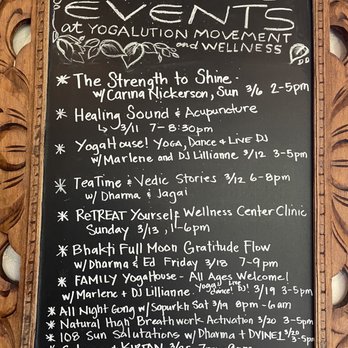 EVENTS
at YOGALUTION MOVEMENT
and WELLNESS
* The Strength to Shine.
w/ Carina Nickerson, Sun 3/6 2-5pm
* Healing Sound & Acupuncture
↳ 3/11 7-8:30pm
* YogaHouse! YOGA, Dance & LIVE DJ
w/ Marlene and DJ Lillianne 3/12 3-5pm
* TeaTime & Vedic Stories 3/12 6-8pm
w/ Dharma & Jagai
* ReTREAT Yourself: Wellness Center Clinic
Sunday 3/13, 1-6pm
* Bhakti Full Moon Gratitude Flow
w/ Dharma & Ed Friday 3/18 7-9pm
* FAMILY YogaHouse - All Ages Welcome!
w/ Marlene + DJ Lillianne. Yoga, Live Dance! DJ! 3/19 3-5pm
* All Night Gong w/ Sopurkh Sat 3/19 8pm-6am
* Natural High Breathwork Activation 3/20 3-5pm
* 108 Sun Salutations w/ Dharma + DVINE1 3/20 3-5pm
+ KIRTAN